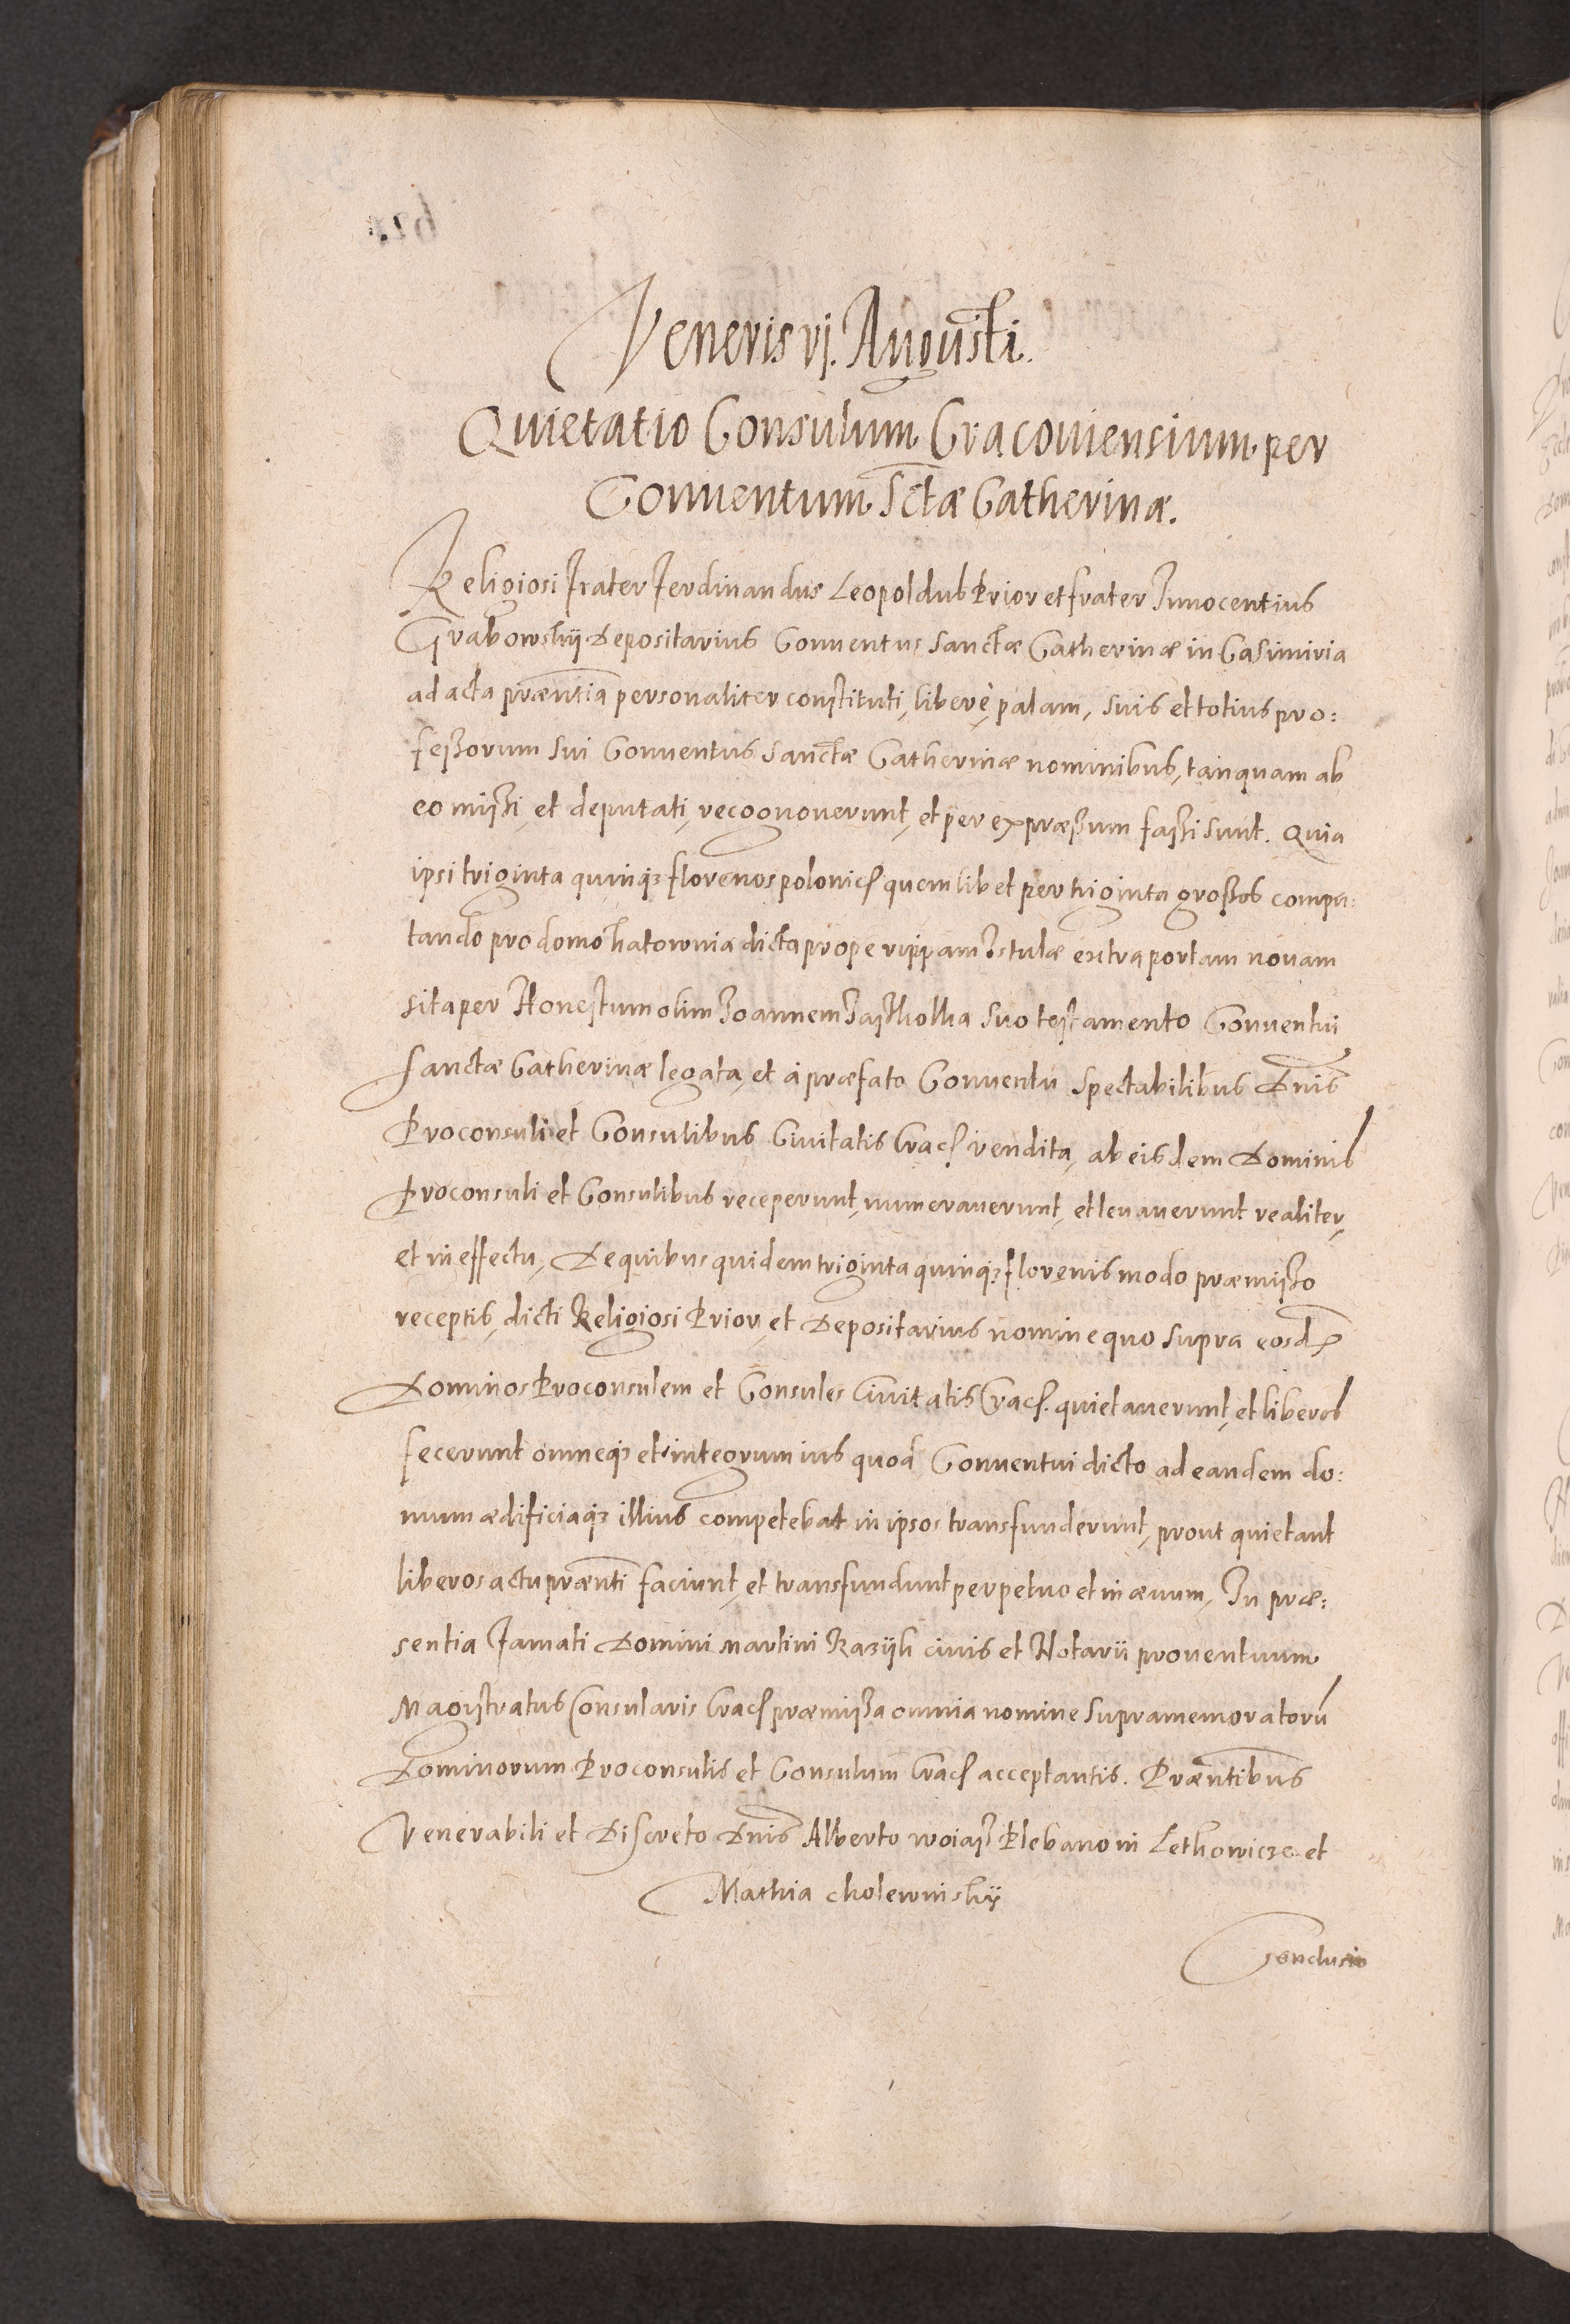 Veneris vj. Augusti.
Quietatio Consulum Cracouiensium per
Conuentum Sctæ Catherinæ.
Religiosi frater ferdinandus Leopoldus Prior et frater Innocentius
Grabowskij Depositarius Conuentus Sanctæ Catherinæ in Casimiria
ad acta præntia personaliter constituti, liberè palam, suis et totius pro:
feßorum sui Conuentus Sanctæ Catherinæ nominibus, tanquam ab
eo mißi, et deputati, recognouerunt, et per expræßum faßi sunt. Quia
ipsi triginta quinqz florenos polonical quemlibet per triginta großos compu:
tando pro domo hatownia dicta prope rippam Istulæ extra portam nouam
sita per Honestum olim Joannem suo testamento Conuentui
Sanctæ Catherinæ legata, et à præfato Conuentu Spectabilibus Dnis
Proconsuli et Consulibus Ciuitatis Crac vendita, ab eisdem Dominis
Proconsuli et Consulibus receperunt, numerauerunt, et leuauerunt realiter,
et in effectu, De quibus quidem triginta quinqz florenis modo præmißo
receptis, dicti Religiosi Prior, et Depositarius nomine quo supra eosd
Dominos Proconsulem et Consules Ciuitatis Crac. quietauerunt, et liberos
fecerunt omneqz et integrum ius quod Conuentui dicto ad eandem do:
mum ædificiaqz illius competebat in ipsos transfunderunt, prout quietant
liberos actu prænti faciunt, et transfundunt perpetuo et in æuum, In præ:
sentia famati Domini Martini Razijk ciuis et Notarii prouentuum
Magistratus Consularis Crac præmißa omnia nomine supramemoratorū
Dominorum Proconsulis et Consulum Crac acceptantis. Præntibus
Venerabili et Discreto Dnis Alberto woiaß Plebano in Lethowicze et
Mathia cholewinskij
Conclusio